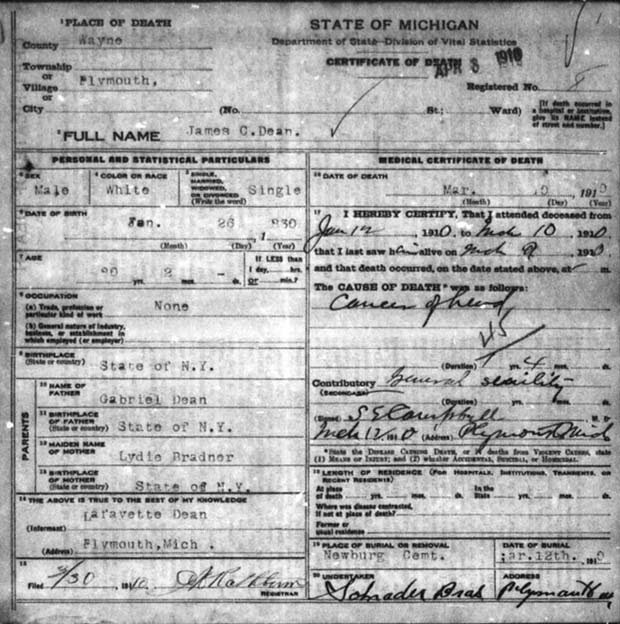 ¹PLACE OF DEATH
County Wayne
Township
or
Village Plymouth,
or
City
STATE OF MICHIGAN
Department of State—Division of Vital Statistics
CERTIFICATE OF DEATH
APR 3 1910
Registered No.
(No. St.; Ward)
[If death occurred in
a hospital or institution,
give its NAME instead
of street and number.]
²FULL NAME James C.Dean.
PERSONAL AND STATISTICAL PARTICULARS
³ SEX
Male
⁴ COLOR OR RACE
White
⁵ SINGLE,
MARRIED,
WIDOWED,
OR DIVORCED
(Write the word)
Single
⁶ DATE OF BIRTH
26
(Month) (Day) (Year)
⁷ AGE
2 -
yrs. mos. ds.
If LESS than
1 day, hrs.
or min.
⁸ OCCUPATION
(a) Trade, profession or
particular kind of work
None
(b) General nature of industry,
business, or establishment in
which employed (or employer)
⁹ BIRTHPLACE
(State or country)
State of N.Y.
PARENTS
¹⁰ NAME OF
FATHER
Gabriel Dean
¹¹ BIRTHPLACE
OF FATHER
(State or country)
State of N.Y.
¹² MAIDEN NAME
OF MOTHER
Lydie Bradner
¹³ BIRTHPLACE
OF MOTHER
(State or country)
State of N.Y.
¹⁴ THE ABOVE IS TRUE TO THE BEST OF MY KNOWLEDGE
(Informant) Lafayette Dean
(Address) Plymouth,Mich .
¹⁵
Filed 3/30, 1910
REGISTRAR
MEDICAL CERTIFICATE OF DEATH
¹⁶ DATE OF DEATH
Mar. , 1910
(Month) (Day) (Year)
¹⁷ I HEREBY CERTIFY, That I attended deceased from
Jan 12, 1910, to Mch 10, 1910
that I last saw him alive on Mch 9, 1910,
and that death occurred, on the date stated above, at m.
The CAUSE OF DEATH* was as follows:
Cancer of head
45
(Duration) yrs. 4 mos. ds.
Contributory General senility
(SECONDARY)
(Duration) yrs. mos. ds.
(Signed) S E Campbell M. D.
Mch 12, 1910 (Address) Plymouth Mich
*State the DISEASE CAUSING DEATH, or in deaths from VIOLENT CAUSES, state
(1) MEANS OF INJURY; and (2) whether ACCIDENTAL, SUICIDAL, or HOMICIDAL.
¹⁸ LENGTH OF RESIDENCE (FOR HOSPITALS, INSTITUTIONS, TRANSIENTS, OR
RECENT RESIDENTS)
At place
of death yrs. mos. ds.
In the
State yrs. mos. ds.
Where was disease contracted,
if not at place of death?
Former or
usual residence
¹⁹ PLACE OF BURIAL OR REMOVAL
Newburg Cemt.
DATE OF BURIAL
12th. , 1910
²⁰ UNDERTAKER
Schrader Bros
ADDRESS